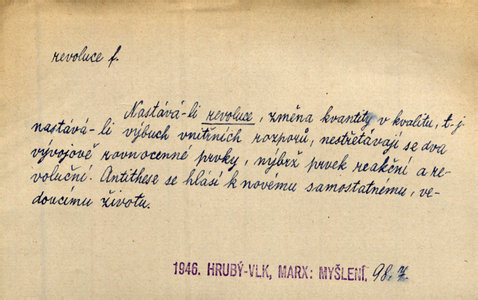 revoluce f.
Nastává-li revoluce, změna kvantity v kvalitu, t. j.
nastává-li výbuch vnitřních rozporů, nestřetávají se dva
vývojově rovnocenné prvky, nýbrž prvek reakční a re-
voluční. Antithese se hlásí k novému samostatnému, ve-
doucímu životu.
1946. HRUBÝ-VLK, MARX: MYŠLENÍ, 98.